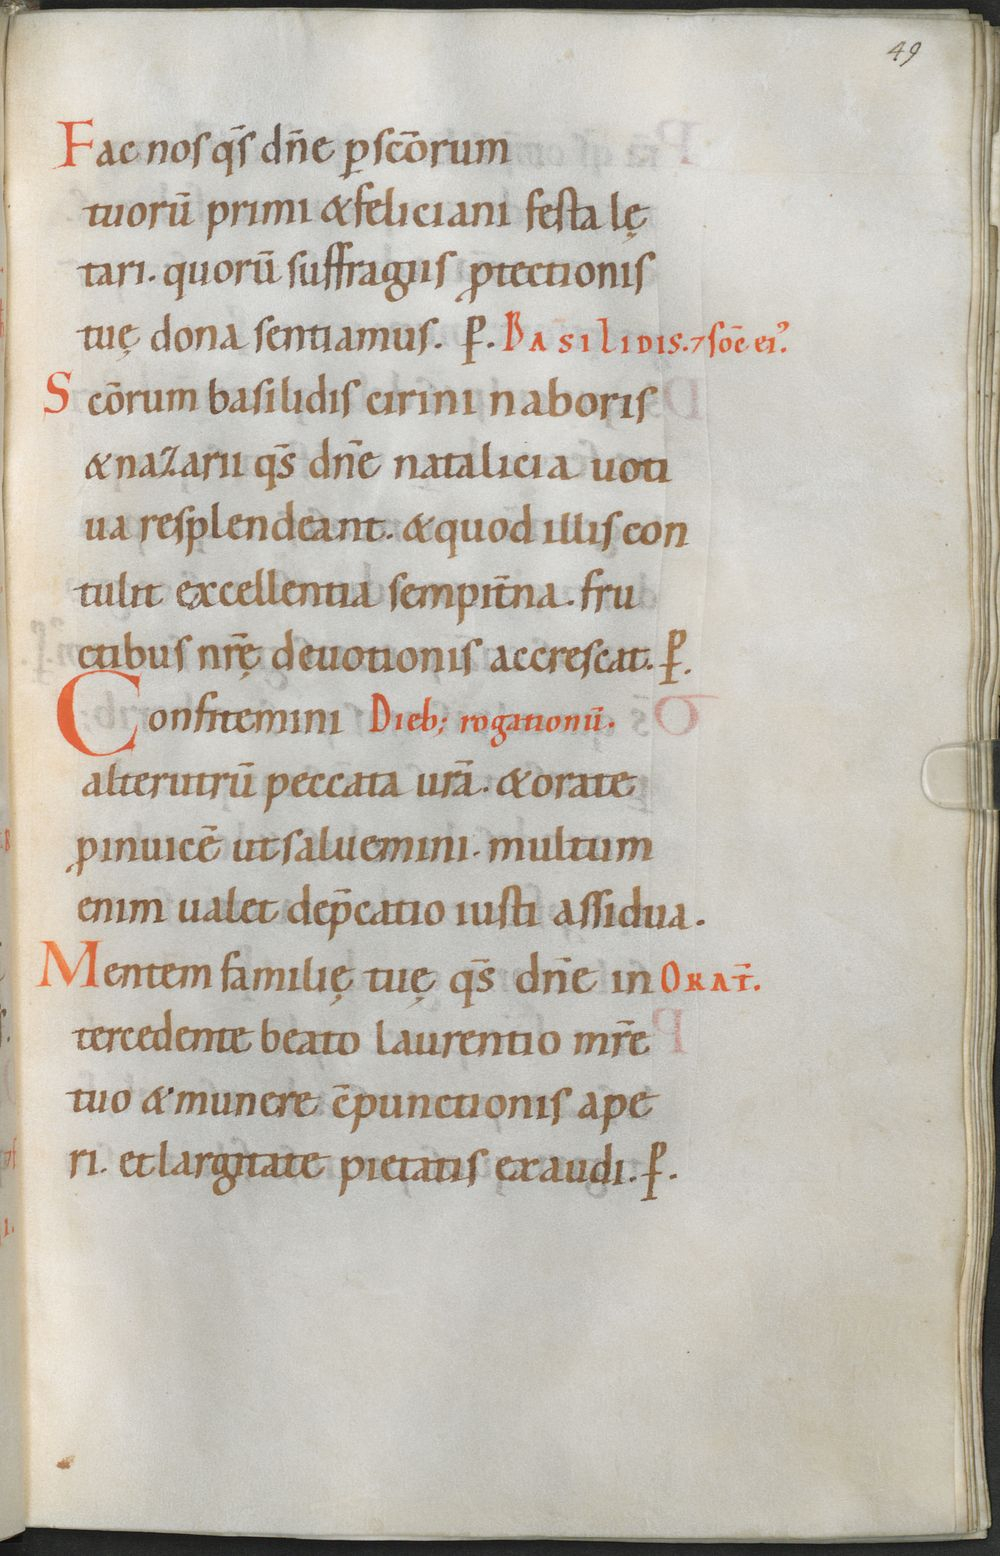 49
Fac nos qs̄ dn̄e ꝑ scōrum
tuorū primi & feliciani festa lę
tari. quorū suffragiis ꝓtectionis
tuę dona sentiamus. P̄. Basilidis. ⁊ soc̄ ei᾿.
Scōrum basilidis cirini naboris
& nazarii qs̄ dn̄e natalicia uoti
ua resplendeant. & quod illis con
tulit excellentia sempit̄na. fru
ctibus nr̄ę deuotionis accrescat. P̄.
Confitemini Dieb; rogationū.
alterutrū peccata ur̄a. & orate
ꝓinuicē ut saluemini. multum
enim ualet dep̄catio iusti assidua.
Mentem familię tuę qs̄ dn̄e in Orat̄.
tercedente beato laurentio mr̄e
tuo & munere c̄punctionis ape
ri. et largitate pietatis exaudi. P̄.